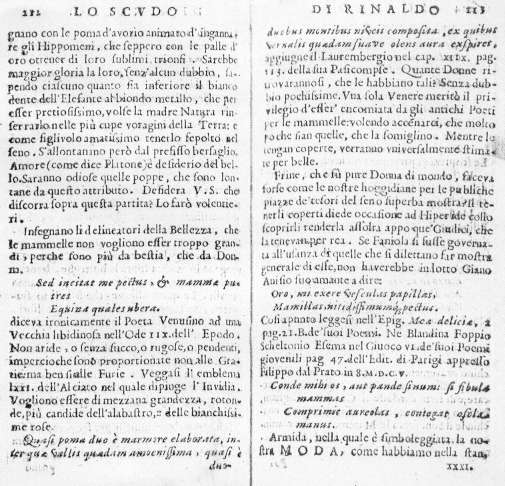 212 LO SCVDO
gnano con le poma d'avorio animato d'inganna-
re gli Hippomeni, che seppero con le palle d'
oro ottener di loro sublimi trionfi. Sarebbe
maggior gloria la loro, senz'alcun dubbio, sa-
pendo ciascuno quanto sia inferiore il bianco
dente dell'Elefante al biondo metallo, che per
esser pretiosissimo, volse la madre Natura rin-
serrarlo nelle più cupe voragini della Terra; e
come figlivolo amatissimo tenerlo sepolto nel
seno. S'allontanan però dal prefisso bersaglio,
Amore (come dice Platone) è desiderio del bel-
lo. Saranno odiose quelle poppe, che sono lon-
tane da questo attributo. Desidera V. S. che
discorra sopra questa partita? Lo farò volentie-
ri.
Insegnano li delineatori della Bellezza, che
le mammelle non vogliono esser troppo gran-
di; perche sono più da bestia, che da Don-
na.
Sed incitat me pectus, & mammæ pu-
tres
Equina quales ubera.
diceva ironicamente il Poeta Venusino ad una
Vecchia libidinosa nell'Ode IIX. dell' Epodo.
Non aride, o senza succo, o rugose, o pendenti,
imperioche sono proportionate non alle Gra-
tie, ma bensi alle Furie. Veggasi l'emblema
LXXI. dell'Alciato nel quale dipinge l'Invidia.
Vogliono essere di mezana grandezza, roton-
de, più candide dell'alabastro, e delle bianchissi-
me rose.
Quasi poma duo è marmore elaborata, in-
ter quæ vallis quædam amœnissima, quasi è
duo-
DI RINALDO 213
duobus montibus niveis composita, ex quibus
vernalis quædam suave olens aura exspiret,
aggiugne il Laurembergio nel cap. XIIX. pag.
113. della sua Pasicompse. Quante Donne ri-
trovarannosi, che le habbiano tali? Senza dub-
bio pochissime. Vna sola Venere meritò il pri-
vilegio d'esser' encomiata da gli antichi Poeti
per le mammelle: volendo accennarci, che molto
poche sian quelle, che la somiglino. Mentre le
tengan coperte, verranno vniversalmente stima-
te per belle.
Frine, che fù pure Donna di mondo, faceva
forse come le nostre hoggidiane per le publiche
piazze de' tesori del seno superba mostra? Il te-
nerli coperti diede occasione ad Hiperide collo
scoprirli renderla assolta appo que' Giudici, che
la tenevan per rea. Se Faniola si fusse governa-
ta all'usanza di quelle che si dilettano far mostra
generale di esse, non haverebbe in lotto Giano
Anisio suo amante a dire:
Oro, mi exere vesculas papillas,
Mamillas, nitidissimumque pectus.
Così apunto leggesi nell'Epig. Meæ deliciæ, a
pag. 21. B. de' suoi Poemi. Ne Blandina Foppio
Scheltonio Esema nel Giuoco VI. de' suoi Poemi
giovenili pag 47. dell'Edit. di Parigi appresso
Filippo dal Prato in 8. M.D.C.V.
Conde mihi os, aut pande sinum: si fibula
mammas
Comprimit aureolas, contegat oscula
manus.
Armida, nella quale è simboleggiata la no-
stra MODA, come habbiamo nella stan.
XXXI.